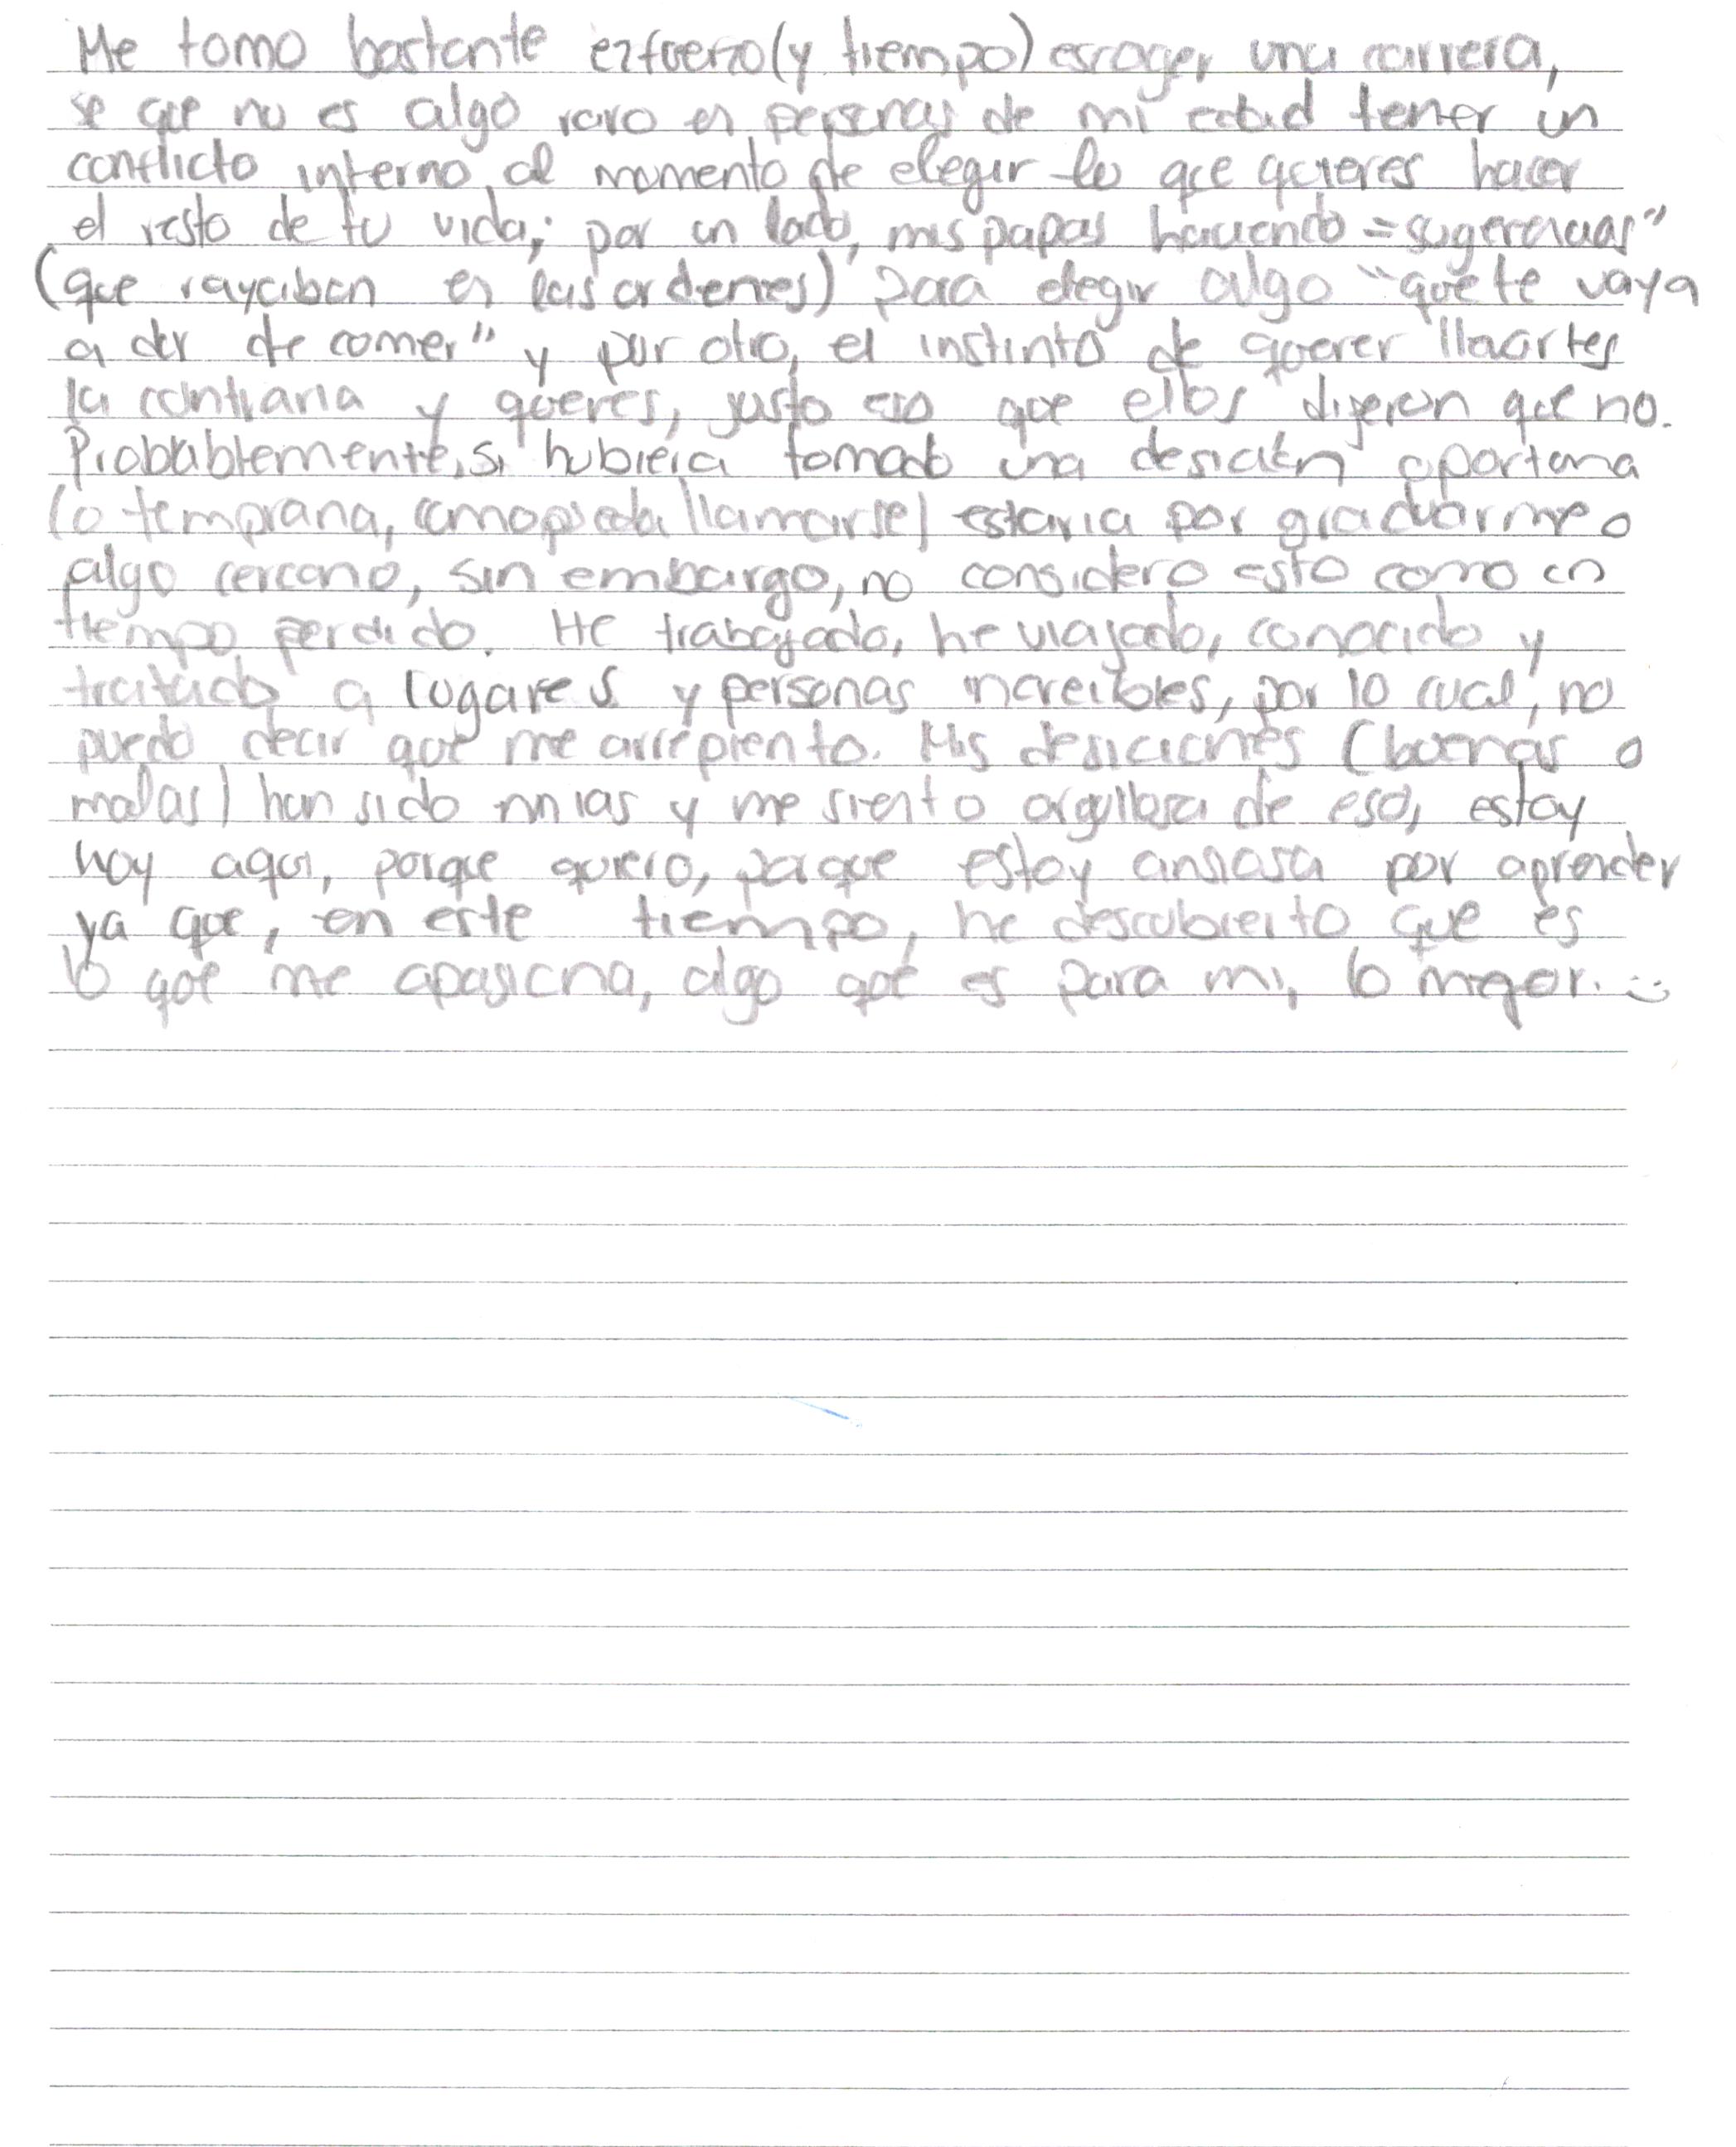 Me tomo bastante ezfuerzo (y tiempo) escoger una carrera,
se que no es algo raro en personas de mi edad tener un
conflicto interno al momento de elegir lo que quieres hacer
el resto de tu vida; por un lado, mis papas haciendo "sugerencias"
(que rayaban en las ordenes) para elegir algo "que te vaya
a der de comer" y por otro, el instinto de querer
la contraria y quieres, justo eso que ellos dijeron que no.
Probablemente, si hubiera tomado una desición oportuna
(o temprana, como pueda llamarse) estaria por graduarme o
algo cercano, sin embargo, no considero esto como un
tiempo perdido. He trabajado, he viajado, conocido y
tratado a lugares y personas increibles, por lo cual, no
puedo decir que me arrepiento. Mis desiciones (buenas o
malas) han sido mias y me siento orgullosa de eso, estoy
hoy aqui, porque quiero, porque estoy ansiosa por aprender
ya que, en este tiempo, he descubierto que es
lo que me apasiona, algo que es para mi, lo mejor. :)